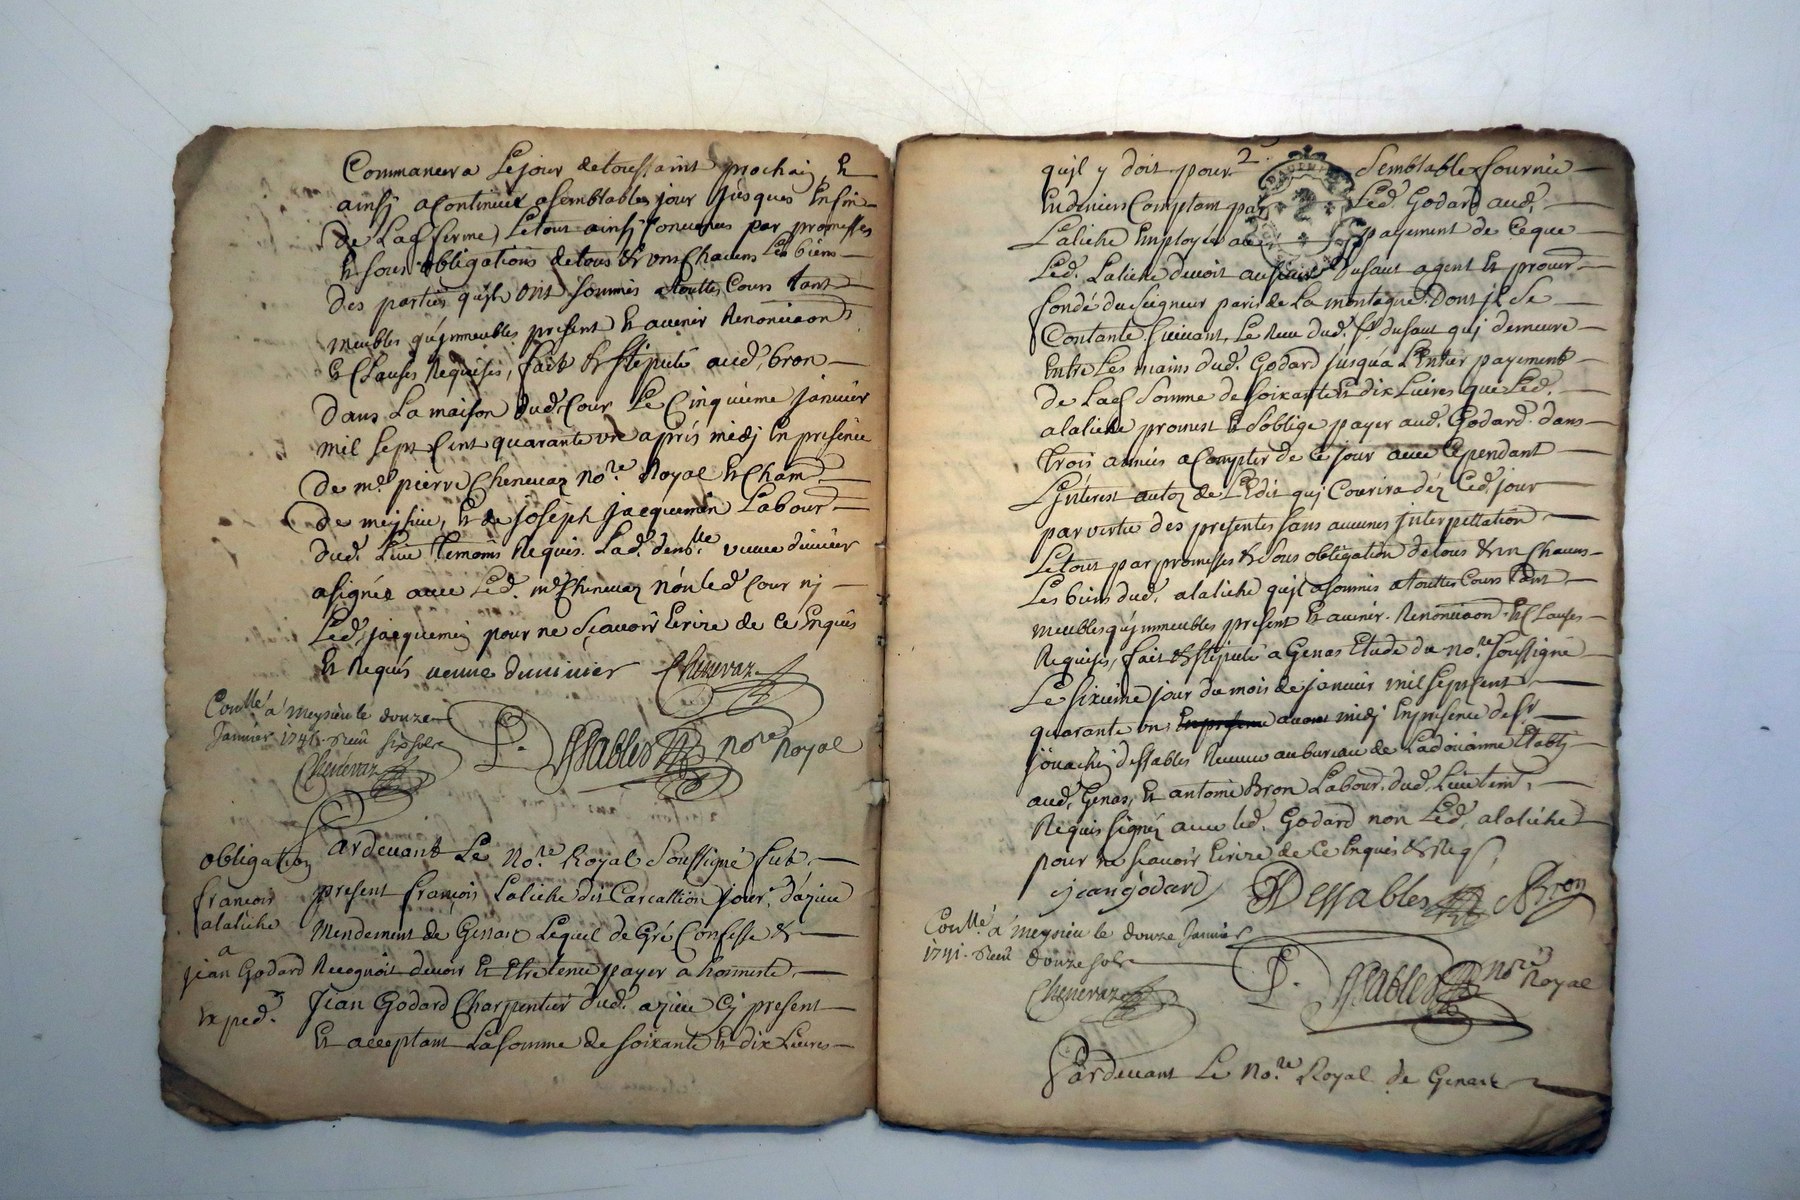 Commancera Le jour de toussaint prochain, Et
ainsy a Continuer a semblables jour Jusques En fin
de Lad. ferme, Le tout ainsy Convenus par promesses
Et sous obligations de tous & uns Chacuns Les biens
des parties quils ont soumis a touttes Cours tant
meubles qu'jmmeubles present Et avenir Renonciaon
Et Clauses Requises, fait Et stipulé aud. bron
dans La maison dud. Cour Le Cinquieme janvier
mil sept Cent quarante un apres midj En presence
De me. pierre Chenevaz nore. Royal Et Cham
de meysieu, Et de joseph jacquemin Labour
dud. Lieu temoins Requis. Lad. denlle veuve
a signéz avec Led. me Chenevaz non led. Cour nj
Led. jacquemin pour ne Scavoir Ecrire de Ce Enquis
Et Requis veuve Chenevaz
Conllé a Meysieu le douze
Janvier 1741. Receu six sols
Chenevaz
P. Dessables nore Royal
Pardevant Le Nore. Royal Soussigné fut
obligation
françois
alaliche
a
jean Godard
Exped.
present françois Laliche dit jour. d'azieu
Mendement de Genas Lequel de Gré Confesse &
Recognoit devoir Et Etre tenu payer a honneste
Jean Godard Charpentier dud. azieu Cy present
Et acceptant La somme de soixante Et dix Livres
2
DAUPHINE
quil y doit pour Semblable Fournie
En deniers Comptant par Led. Godard aud.
Laliche Employés au payement de Ceque
Led. Laliche devoit au sieur Dusaut agent Et procur
fondé du Seigneur paris de La montagne Dont jl Se
Contante suivant Le Receu dud. sr. dusaut quj demeure
Entre Les mains dud. Godard jusqua L'Entier payement
de Lad. Somme de soixante Et dix Livres que Led.
alaliche promest Et s'oblige payer aud. Godard dans
trois années a Compter de Ce jour avec Cependant
L'jnterest de L'Edit quj Courira déz Ced. jour
par vertu des presentes sans aucunes Interpellation
Le tout par promesses & sous obligation de tous & un Chacuns
Les biens dud. alaliche quil a soumis a touttes Cours tant
meubles qu'jmmeubles present Et avenir Renonciaon Et Clauses
Requises, fait & stipulé a Genas Etude du nore. soussigné
Le sixieme jour du mois de janvier mil sept cent
quarante un avant midj En presence de sr.
jouachin dessables Receveur au bureau de La doüanne Etablj
aud. Genas, Et antoine Bron Labour. dud. Lieu tem.
Requis signéz avec led. Godard non Led. alaliche
pour ne scavoir Ecrire de Ce Enquis & Req.
jean godard Dessables A Bron
Conllé a Meysieu le douze Janvier
1741. Receu douze sols
Chenevaz
P. Dessables nore Royal
Pardevant Le Nore. Royal de Genas